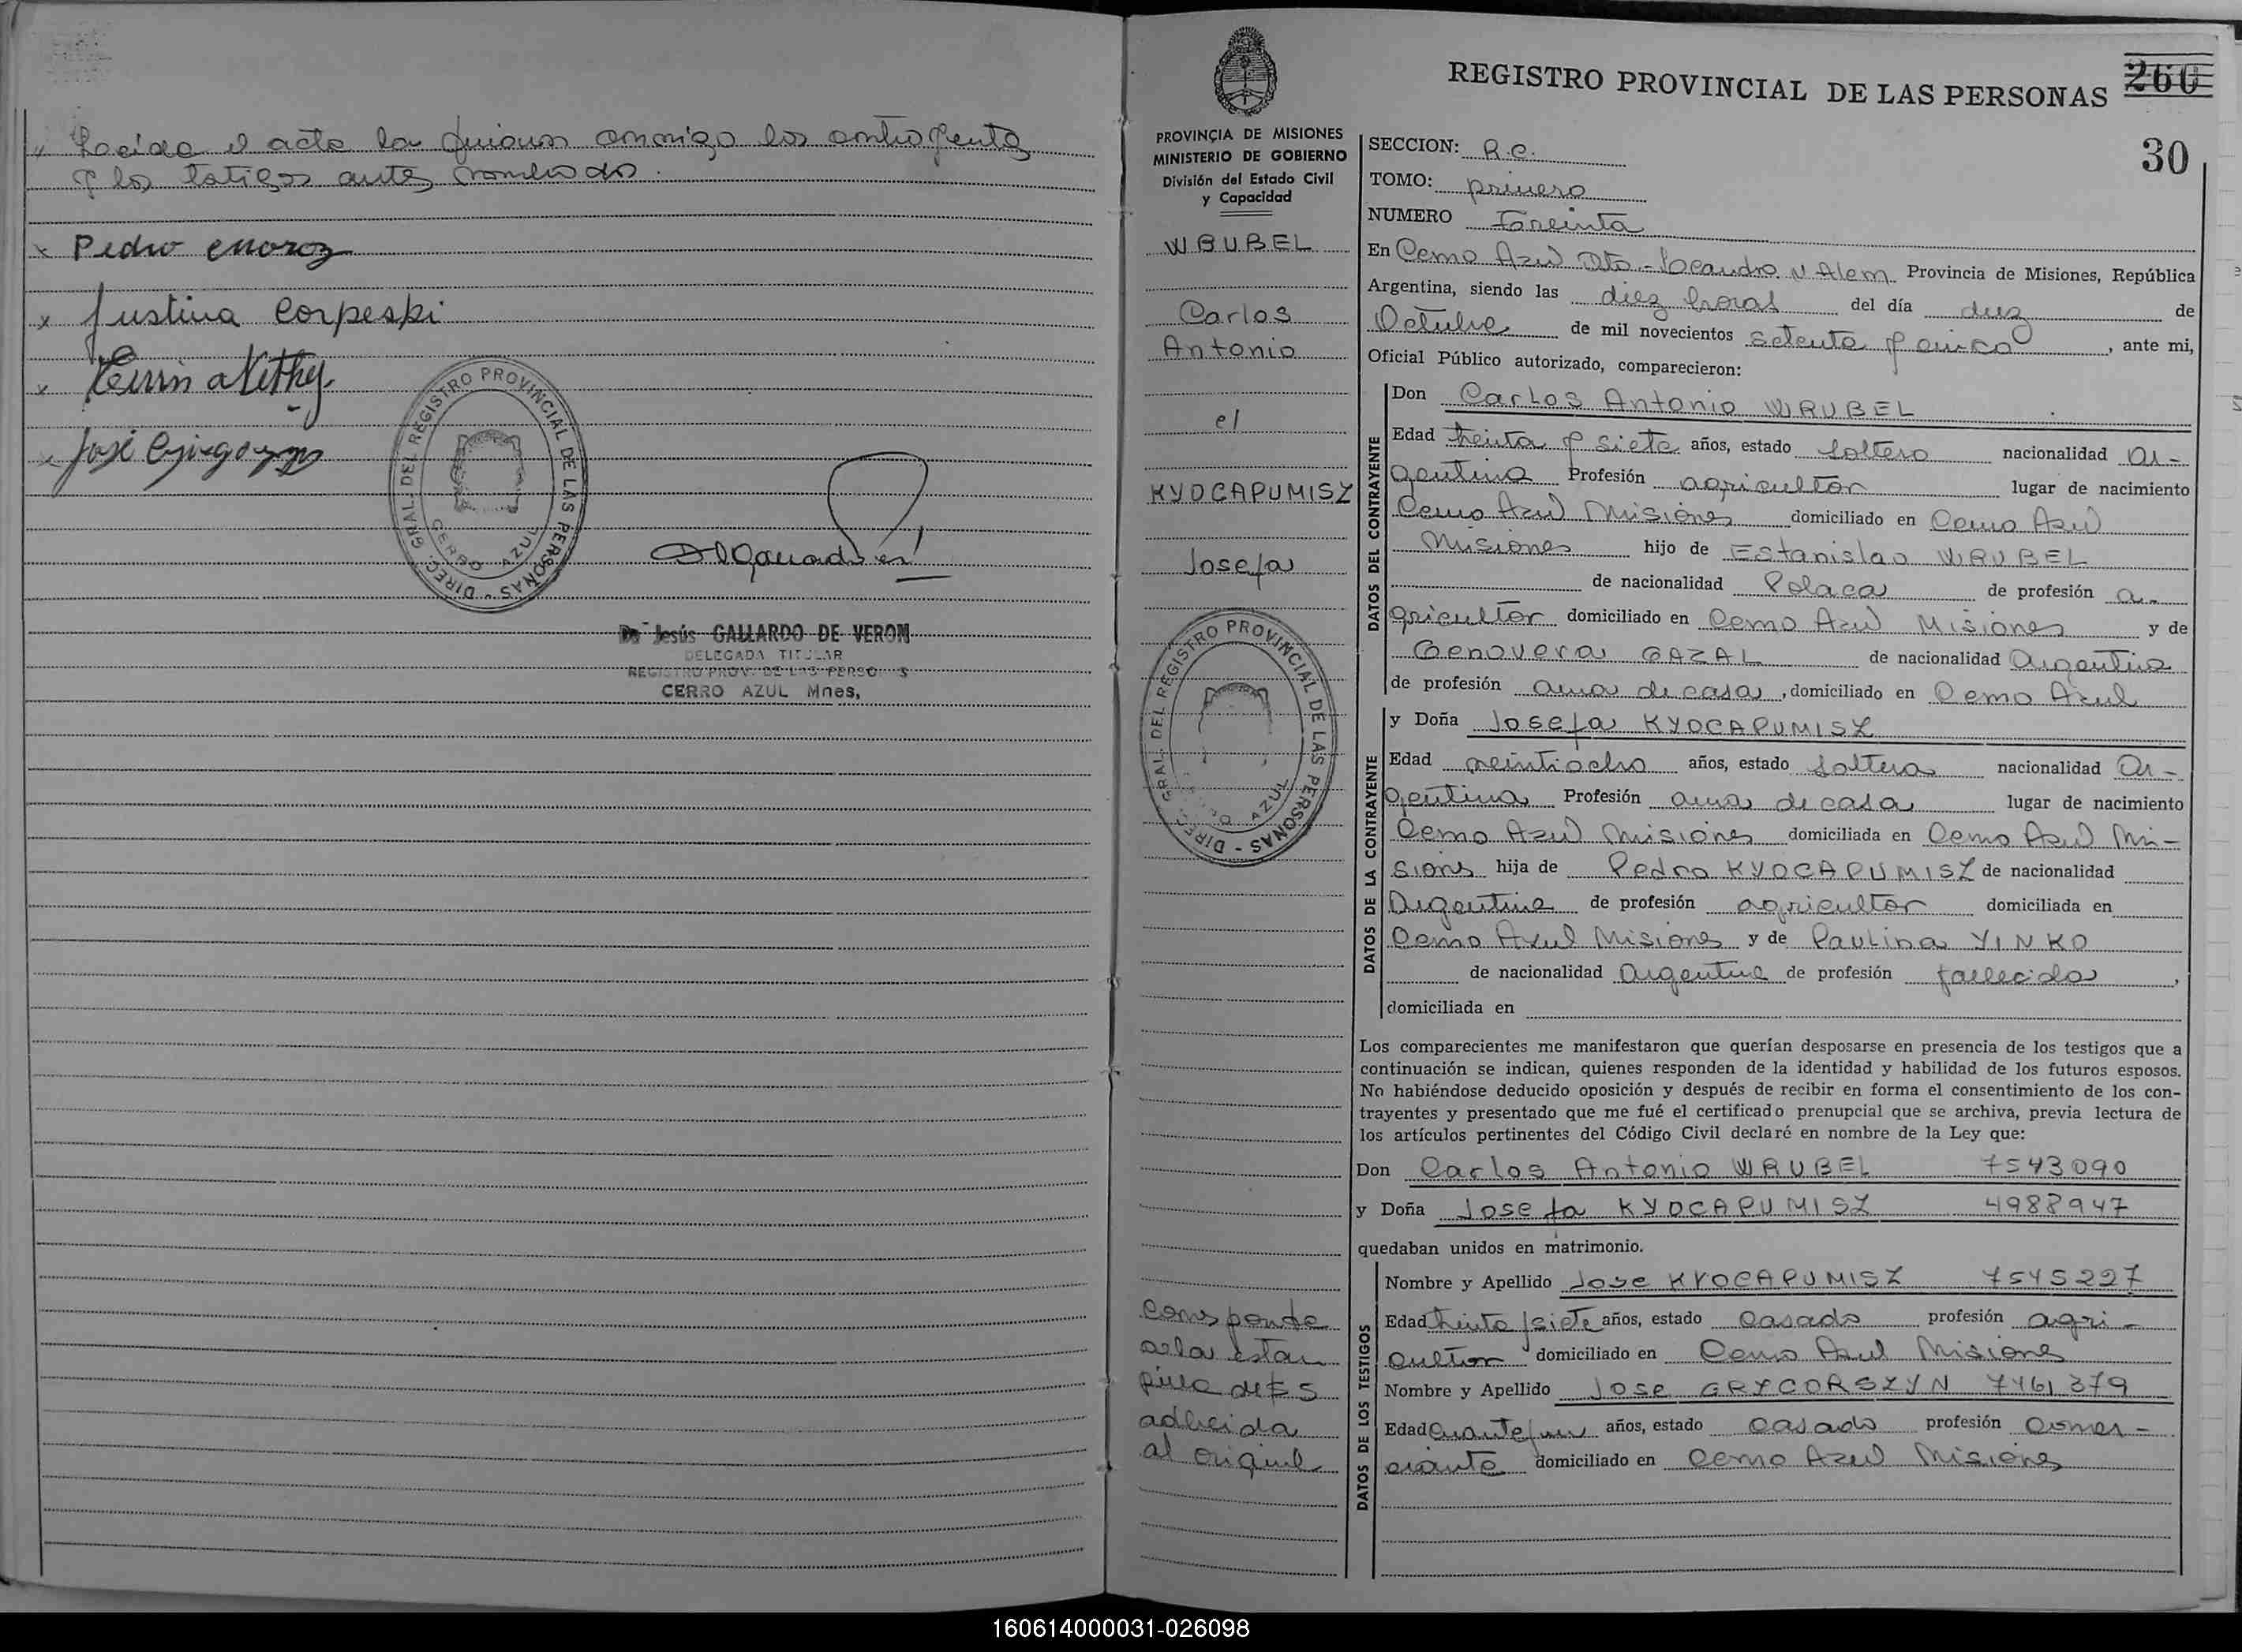 Leída el acta la firman conmigo los contrayentes
y los testigos antes nombrados.
x Pedro
x Justina Corpeski
x
x José
DIREC. GRAL. DEL REGISTRO PROVINCIAL DE LAS PERSONAS - CERRO AZUL
Da Jesús GALLARDO DE VERON
DELEGADA TITULAR
REGISTRO PROV. DE LAS PERSONAS
CERRO AZUL Mnes,
REGISTRO PROVINCIAL DE LAS PERSONAS 260
30
PROVINCIA DE MISIONES
MINISTERIO DE GOBIERNO
División del Estado Civil
y Capacidad
WRUBEL
Carlos
Antonio
el
KYOCAPUMISZ
Josefa
DIREC. GRAL. DEL REGISTRO PROVINCIAL DE LAS PERSONAS - CERRO AZUL
Corresponde
a la estam
pilla de $ 5
adherida
al original
SECCION: R.C.
TOMO: primero
NUMERO Treinta
En Cerro Azul Dto. Leandro N Alem Provincia de Misiones, República
Argentina, siendo las diez horas del día diez de
Octubre de mil novecientos setenta y cinco, ante mi,
Oficial Público autorizado, comparecieron:
DATOS DEL CONTRAYENTE
Don Carlos Antonio WRUBEL
Edad treinta y siete años, estado soltero nacionalidad ar-
gentina Profesión agricultor lugar de nacimiento
Cerro Azul Misiones domiciliado en Cerro Azul
Misiones hijo de Estanislao WRUBEL
de nacionalidad Polaca de profesión a-
gricultor domiciliado en Cerro Azul Misiones y de
Genoveva GAZAL de nacionalidad Argentina
de profesión ama de casa, domiciliado en Cerro Azul
DATOS DE LA CONTRAYENTE
y Doña Josefa KYOCAPUMISZ
Edad veintiocho años, estado soltera nacionalidad Ar-
gentina Profesión ama de casa lugar de nacimiento
Cerro Azul Misiones domiciliada en Cerro Azul Mi-
siones hija de Pedro KYOCAPUMISZ de nacionalidad
Argentina de profesión agricultor domiciliada en
Cerro Azul Misiones y de Paulina YINKO
de nacionalidad Argentina de profesión fallecida,
domiciliada en
Los comparecientes me manifestaron que querían desposarse en presencia de los testigos que a
continuación se indican, quienes responden de la identidad y habilidad de los futuros esposos.
No habiéndose deducido oposición y después de recibir en forma el consentimiento de los con-
trayentes y presentado que me fué el certificado prenupcial que se archiva, previa lectura de
los artículos pertinentes del Código Civil declaré en nombre de la Ley que:
Don Carlos Antonio WRUBEL 7543090
y Doña Josefa KYOCAPUMISZ 4988947
quedaban unidos en matrimonio.
DATOS DE LOS TESTIGOS
Nombre y Apellido Jose KYOCAPUMISZ 7545227
Edad treinta y siete años, estado casado profesión agri-
cultor domiciliado en Cerro Azul Misiones
Nombre y Apellido JOSE GRYCORSZYN 7461379
Edad años, estado casado profesión comer-
ciante domiciliado en Cerro Azul Misiones
160614000031-026098